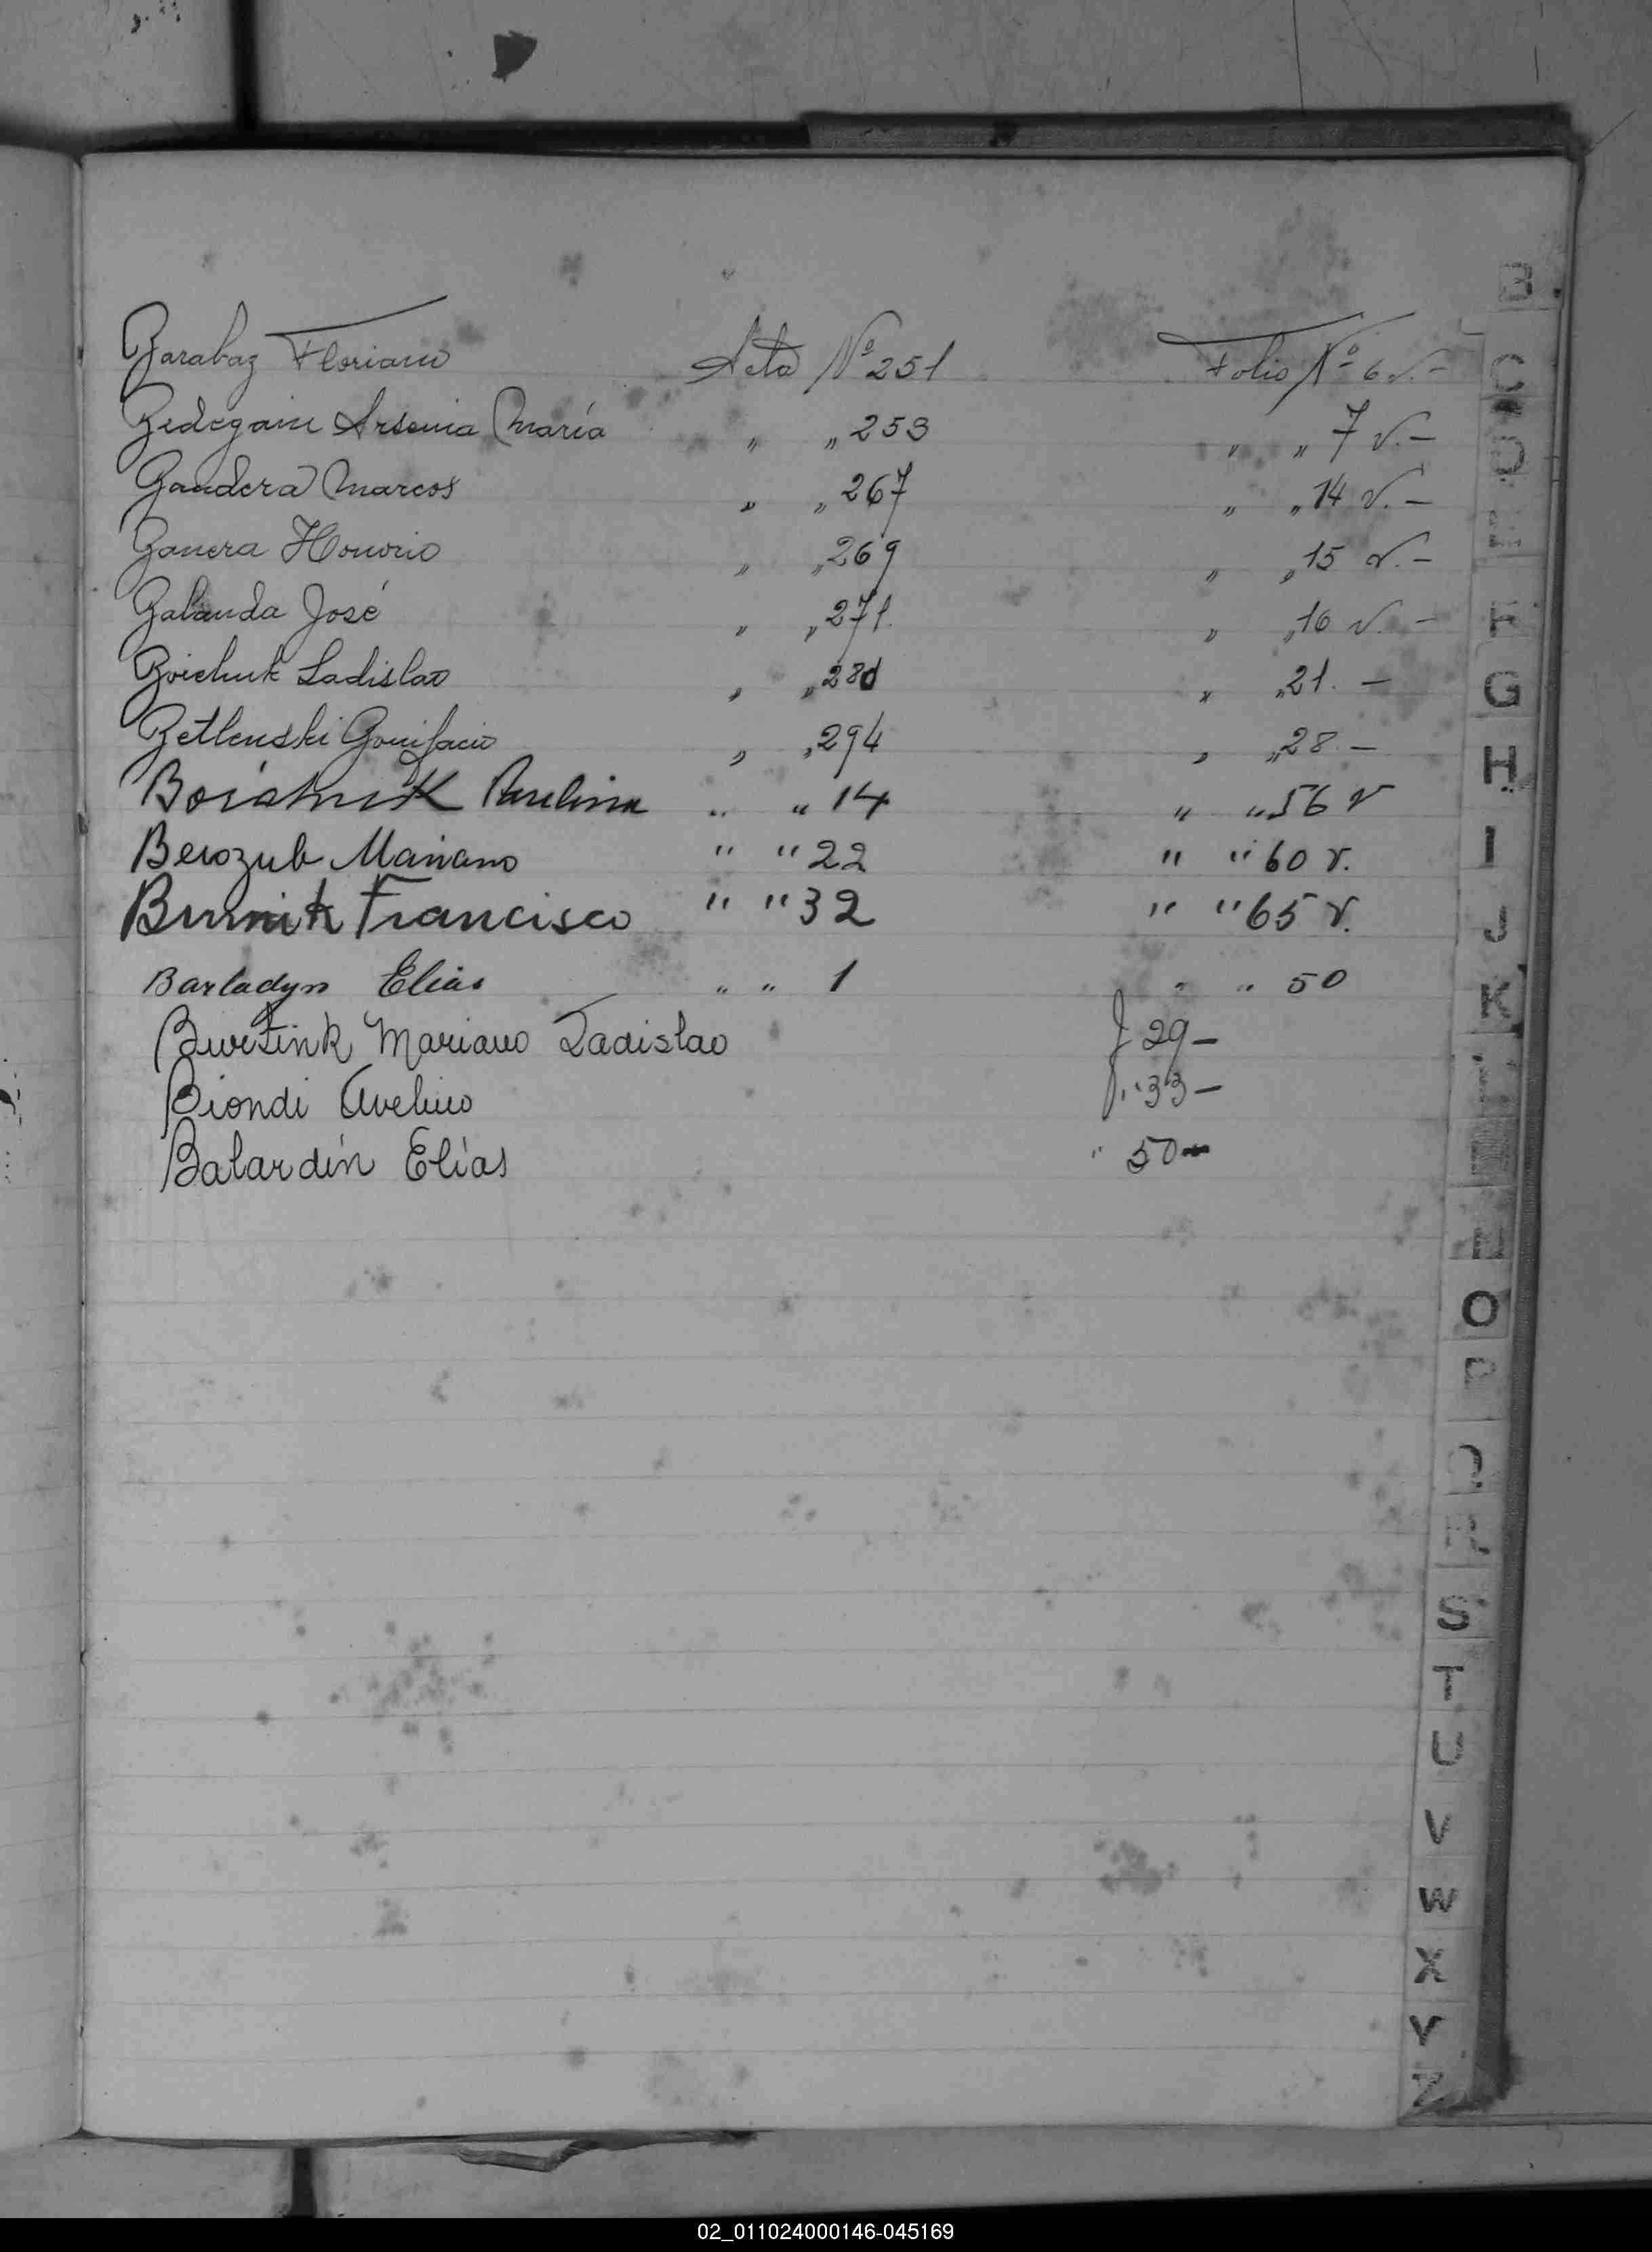 Barabaz Floriano Acta Nº 251 Folio Nº 6 v.-
Bedegain Arsenia María " " 253 " " 7 v.-
Bandera Marcos " " 267 " " 14 v.-
Banera Honorio " " 269 " " 15 v.-
Balanda José " " 271. " " 16 v.-
Boichuk Ladislao " " 28 " " 21.-
Betlenski Bonifacio " " 294 " " 28.-
Paulina " " 14 " " 56 v
Berozub Mariano " " 22 " " 60 v.
Burnik Francisco " " 32 " " 65 v.
Barladyn Elias " " 1 " " 50
Mariano Ladislao f 29-
Biondi Avelino " 33-
Balardín Elías " 50-
B
C
D
E
F
G
H
I
J
K
O
P
Q
R
S
T
U
V
W
X
Y
Z
02_011024000146-045169